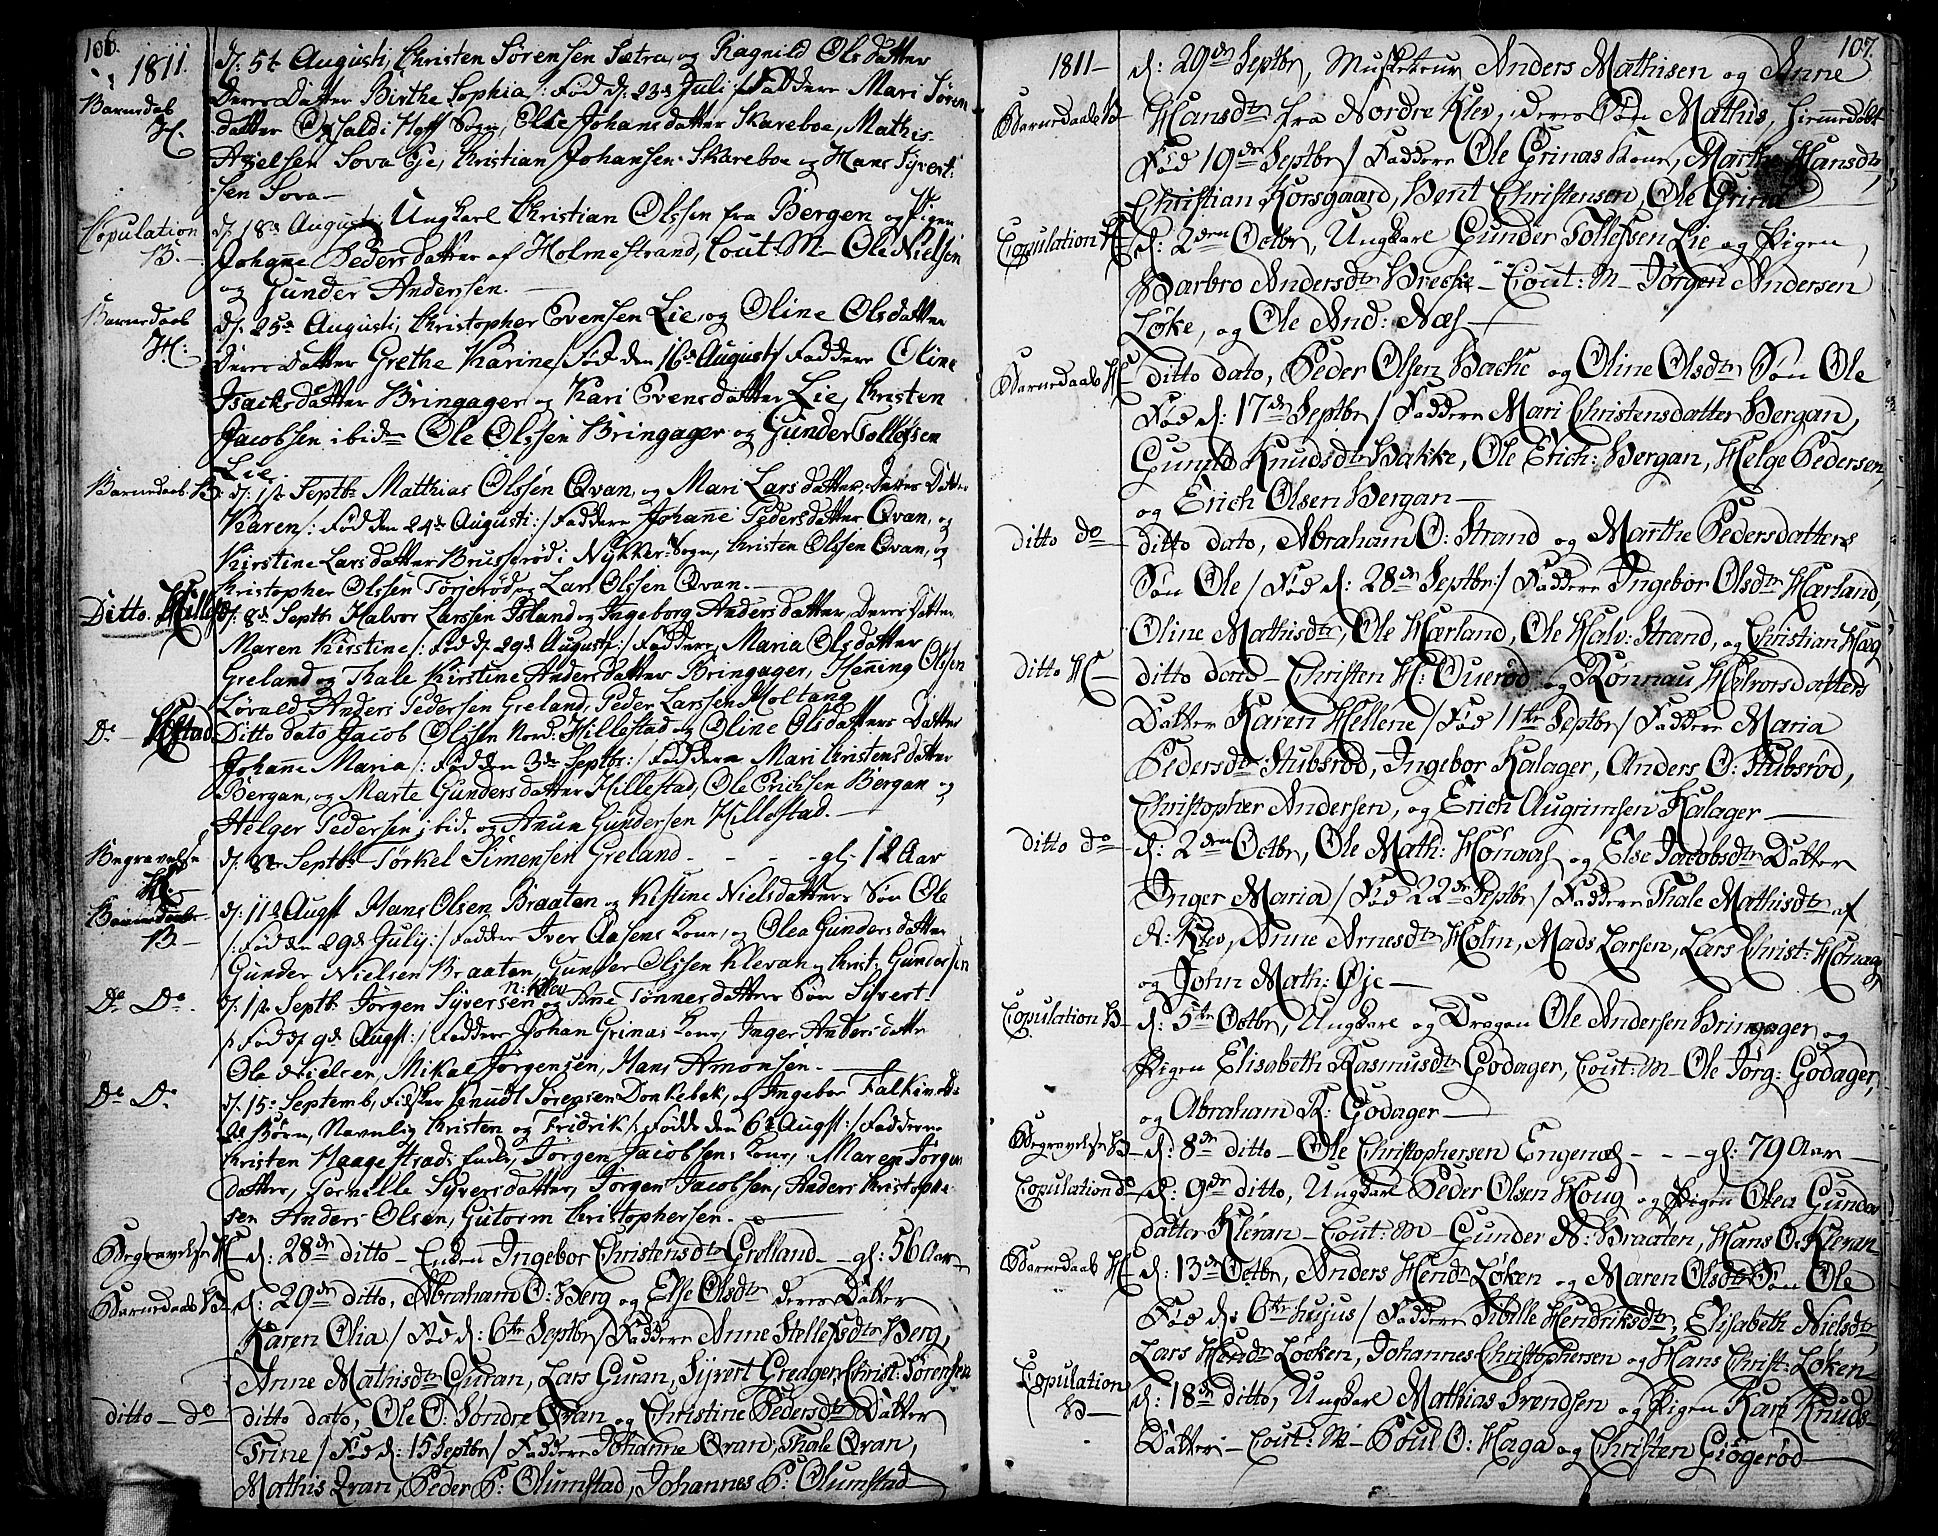 106.
1811.
d: 5t Augusti, Christen Sørensen Sætra, og Ragnild Olsdatter
Barnedaab
H.
Deres Datter Birthe Sophia /: Fød d: 23d Juli / Faddere Mari Søren
datter i Hoff Sogn, Else Johansdatter Skareboe, Mathis
Axelsen Sova Eje, Christian Johansen Skareboe og Hans Syvert-
sen Sova –
Copulation
B. –
d: 18d Augusti, Ungkarl Christian Olssen fra Bergen og Pigen
Johane Pedersdatter af Holmestrand, Cout: M – Ole Nielsen
og Gunder Anderssen. –
Barnedaab
H:
d: 25d Augusti, Christopher Evensen Lie, og Oline Olsdatter
Deres datter Grethe Karine / Fød den 16d Augusti / Faddere Oline
Isachsdatter Bringager og Kari Evensdatter Lie, Christen
Jacobsen ibid – Ole Olssen Bringager og Gunder Tollefsen
Lie.
Barnedaab B:
d: 1st Septbr Mathias Olssen Qvan, og Mari Larsdatter, deres Datter
Karen /: Fød den 24d Augusti :/ Faddere Johane Pedersdatter Qvan, og
Kirstine Larsdatter Brusserød i Nykker: Sogn, Christen Olssen Qvan, og
Christopher Olssen Torjerød og Lars Olssen Qvan. –
Ditto. Hillest:
d: 8d Septbr Halvor Larssen Island og Ingeborg Andersdatter, Deres Datter
Maren Kirstine /: Fød d: 29d Augusti :/ Faddere, Maria Olsdatter
Greland og Thale Kirstine Andersdatter Bringager, Haning Olssen
Løvald Anders Pedersen Greland, Peder Larssen Holtang
Do –
Ditto dato Jacob Olssen Nord: Hillestad og Oline Olsdatters Datter
Johane Maria /: Fød den 3de Septbr :/ Faddere Mari Christensdatter
Bergan, og Marte Gundersdatter Hillestad, Ole Erichsen Bergan og
Helger Pedersen ibid. og Anun Gundersen Hillestad. –
Begravelse
H: –
d: 8de Septbr Torkel Simensen Greland – – – gl: 12 Aar
Barnedaab
B –
d: 11d Augst Hans Olsen Braaten og Kistine Nielsdatters Søn Ole
/: Fød den 29d July :/ Fadder Iver Aasens Kone, og Olea Gundersdatter
Gunder Nielsen Braaten, Gunder Olssen Klevan og Christ: Gundersen
Do Do.
d: 1st Septbr Jørgen Syversen n: Klev og Ane Tønnesdatters Søn Syvert
/: Fød d: 9d Augst :/ Fadder Johan Grinas Kone, Inger Andersdatter
Ole Nielsen, Mikal Jørgensen, Hans Amonsen. –
Do Do.
d: 15: Septemb, Fisker Knudt Sørensen Donkebek, og Ingebor Falkinvatt:
2de Børn, Navnlig Christen og Fridrik /: Fødde den 6d Augst :/ Faddere
Christen Haagestrads Enke, Jørgen Jacobsens Kone, Maren Jørgen
datter, Pernelle Syversdatter, Jørgen Jacobsen, Anders Christophe
sen Anders Olsen, Gutorm Christophersen. –
Begravelse H
d: 28de ditto – Enken Ingebor Christensdtr Grelland – gl: 56 Aar –
Barnedaab B –
d: 29de ditto, Abraham O: Berg og Else Olsdtr deres Datter
Karen Olia / Fød d: 6te Septbr / Faddere Anne Stellefsdtr Berg,
Anne Mathisdtr Guran, Lars Guran, Syvert Greager, Christ: Sørensen
ditto – do
ditto dato, Ole O: Søndre Qvan og Christine Pedersdtr Datter
Trine / Fød d: 15 Septbr / Faddere Johanne Qvan, Thale Qvan,
Mathis Qvan, Peder P: Olumstad, Johannes P: Olumstad
107.
1811 –
d: 29de Septbr, Musketeur Anders Mathisen og Anne
Barnedaab B –
Hansdtr fra Nordre Klev, deres Søn Mathis, hiemedøbt
Fød 19de Septbr / Faddere Ole Grinas Kone, Marthe Hansdtr,
Christian Korsgaard, Bent Christensen, Ole Grina –
Copulation H
d: 2den Octbr, Ungkarl Gunder Tollefsen Lie og Pigen,
Barbro Andersdtr Brecke – Cout: M – Jørgen Andersen
Løke, og Ole And: Næs –
Barnedaab H
ditto dato, Peder Olsen Backe og Oline Olsdtr Søn Ole
Fød d: 17de Septbr / Faddere Mari Christensdatter Bergan,
Gunild Knudsdtr Bakke, Ole Erich: Bergan, Helge Pedersen,
og Erich Olsen Bergan –
ditto do –
ditto dato, Abraham O: Strand og Marthe Pedersdatters
Søn Ole / Fød d: 28de Septbr :/ Faddere Ingebor Olsdtr Hærland,
Oline Mathisdtr, Ole Hærland, Ole Halv: Strand, og Christian Haug
ditto H –
ditto dato – Christen H: Ouerød og Rønnau Helvorsdatters
Datter Karen Hellene / Fød 11te Septbr / Faddere Maria
Pedersdtr Stubsrød, Ingebor Kalager, Anders O: Stubsrød,
Christopher Andersen, og Erich Augrimsen Kalager –
ditto do
d: 2den Octbr, Ole Math: Hønaas og Else Jacobsdtr Datter
Inger Maria / Fød 22de Septbr / Faddere Thale Mathisdtr af
N: Klev, Anne Arnesdtr Holm, Mads Larsen, Lars Christ: Hønag
og John Math: Øje –
Copulation B –
d: 5te Octbr, Ungkarl og Dragon Ole Andersen Bringager og
Pigen Elisabeth Rasmusdtr Godager, Cout: M – Ole Jørg: Godager,
og Abraham R: Godager –
Begravelse B –
d: 8de ditto – Ole Christophersen Engenæs – – – gl: 79 Aar –
Copulation do –
d: 9de ditto, Ungkarl Peder Olsen Houg og Pigen Olea Gunder
datter Kleran – Cout: M – Gunder N: Braaten, Hans O: Kleran –
Barnedaab H –
d: 13de Octbr, Anders Hendr: Løken og Maren Olsdtr Søn Ole
Fød d: 6te hujus / Faddere Sibille Hendriksdtr, Elisabeth Nielsdtr
Lars Hendr: Løcken, Johannes Christophersen og Hans Christ: Løken –
Copulation
B –
d: 18de ditto, Ungkarl Mathias Svendsen og Pigen Kari Knuds
datter – Cout: M – Poul O: Haga og Christen Giøgerød –